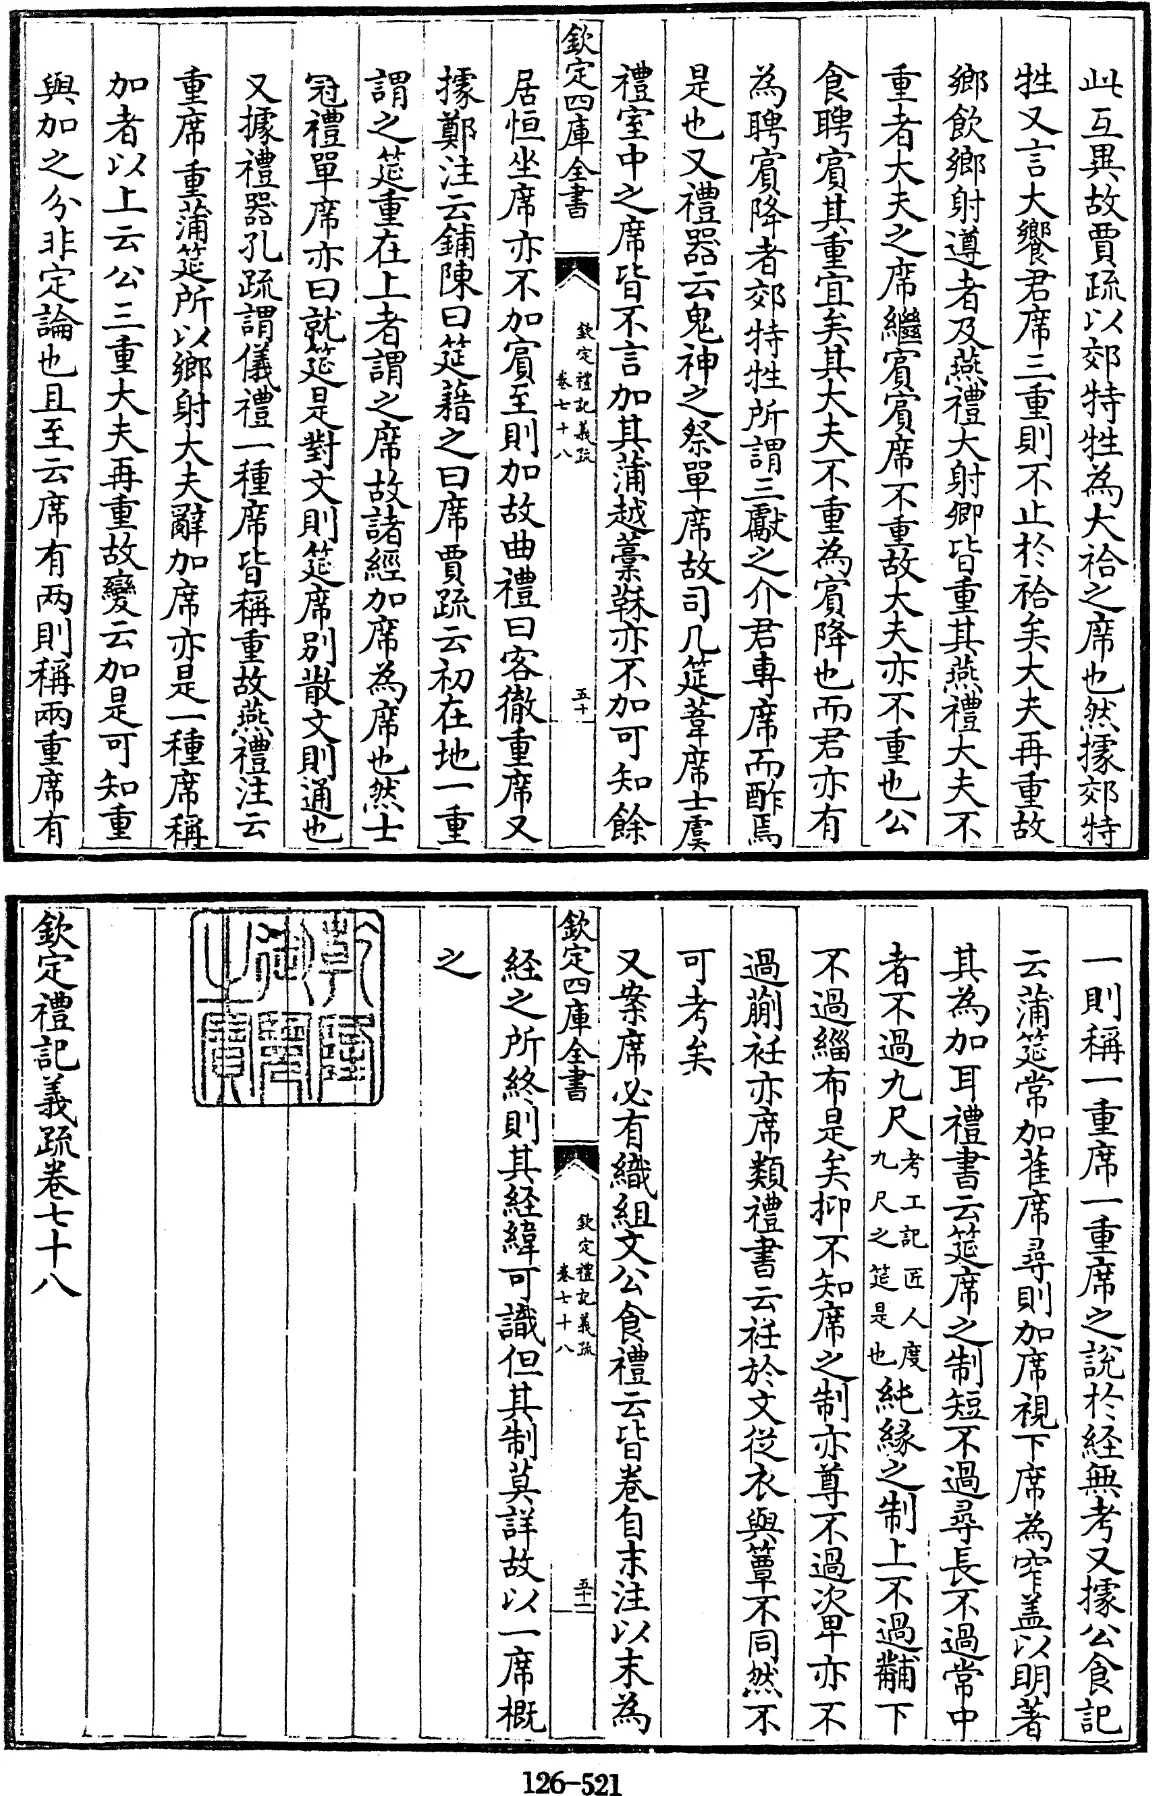 此互異故賈疏以郊特牲為大祫之席也然據郊特
牲又言大饗君席三重則不止於祫矣大夫再重故
鄉飲鄉射遵者及燕禮大射卿皆重其燕禮大夫不
重者大夫之席繼賓賓席不重故大夫亦不重也公
食聘賓其重宜矣其大夫不重為賓降也而君亦有
為聘賓降者郊特牲所謂三獻之介君專席而酢焉
是也又禮器云鬼神之祭單席故司几筵葦席士虞
禮室中之席皆不言加其蒲越藳秣亦不加可知餘
欽定四庫全書
欽定禮記義疏
卷七十八
五十一
居恒坐席亦不加賓至則加故曲禮曰客徹重席又
據鄭注云鋪陳曰筵藉之曰席賈疏云初在地一重
謂之筵重在上者謂之席故諸經加席為席也然士
冠禮單席亦曰就筵是對文則筵席别散文則通也
又據禮器孔疏謂儀禮一種席皆稱重故燕禮注云
重席重蒲筵所以鄉射大夫辭加席亦是一種席稱
加者以上云公三重大夫再重故變云加是可知重
與加之分非定論也且至云席有兩則稱兩重席有
一則稱一重席一重席之說於経無考又據公食記
云蒲筵常加萑席尋則加席視下席為窄盖以明著
其為加耳禮書云筵席之制短不過尋長不過常中
者不過九尺考工記匠人度九尺之筵是也純緣之制上不過黼下
不過緇布是矣抑不知席之制亦尊不過次卑亦不
過蒯衽亦席類禮書云衽於文從衣與簟不同然不
可考矣
又案席必有織組文公食禮云皆卷自末注以末為
欽定四庫全書
欽定禮記義疏
卷七十八
五十二
経之所終則其経緯可識但其制莫詳故以一席概
之
乾隆御覽之寶
欽定禮記義疏卷七十八
126-521